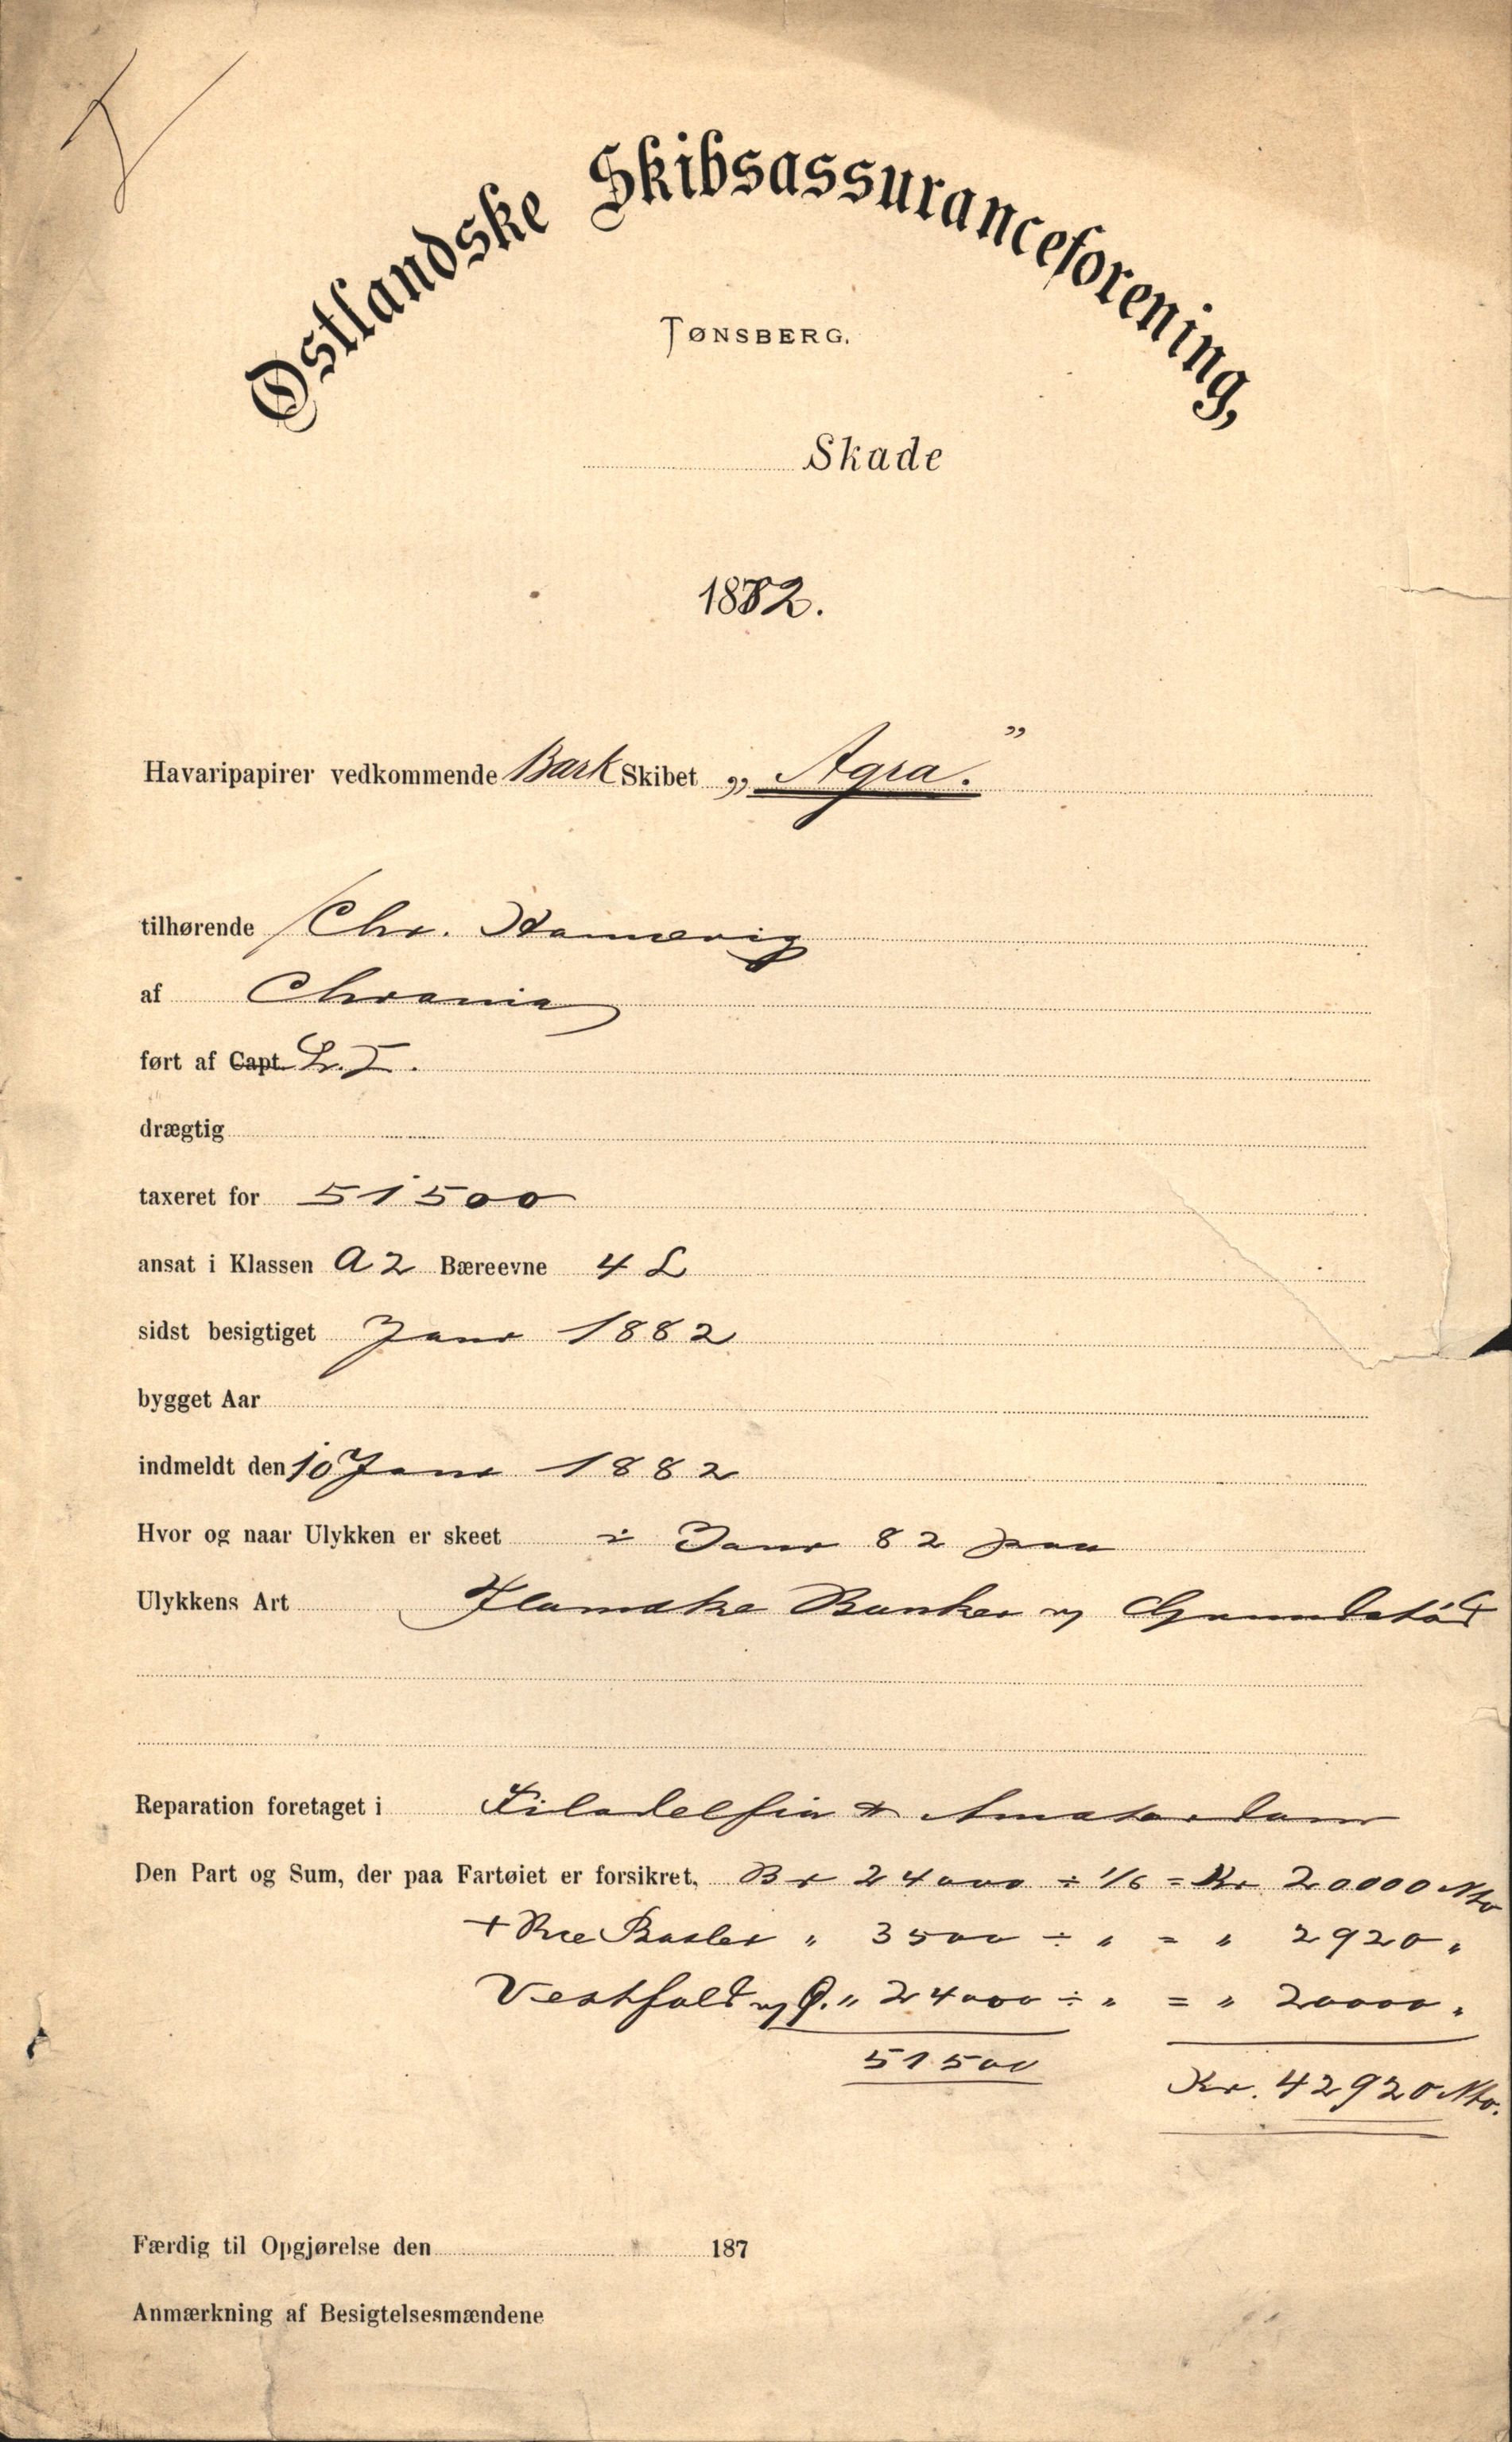 Østlandske Skibsassuranceforening,
TØNSBERG.
Skade
1882.
Havaripapirer vedkommende Bark Skibet „Agra.”
tilhørende Chr. Hannevig
af Chrania
ført af Capt.
drægtig
taxeret for 51500
ansat i Klassen A2 Bæreevne 4 L
sidst besigtiget Janr 1882
bygget Aar
indmeldt den 10 Janr 1882
Hvor og naar Ulykken er skeet i Janr 82 paa
Ulykkens Art Flamske Banker og Grundstød
Reparation foretaget i Filadelfia & Amsterdam
Den Part og Sum, der paa Fartøiet er forsikret, Br 24000 ÷ 1/6 = Kr 20000 Nto
+ " 3500 ÷ " = " 2920 "
Vestfold og Ø. " 24000 ÷ " = " 20000 "
51500
Kr. 42920 Nto.
Færdig til Opgjørelse den 187
Anmærkning af Besigtelsesmændene